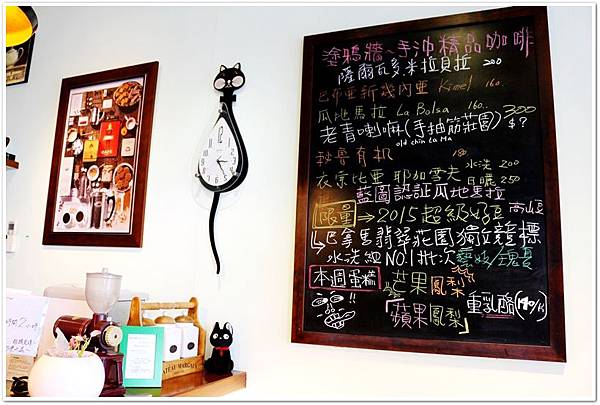 塗鴉牆~手沖精品咖啡
薩爾瓦多米拉貝拉 200
巴布亞新幾內亞 Kimel 160.
瓜地馬拉 La Bolsa 160.
老青喇嘛(手抽筋莊園) 300 $?
old chin La Ma
秘魯有机 180
衣索比亞 耶加雪夫 水洗 200
日曬 250
藍圖認証瓜地馬拉
限量→2015超級好豆 高山豆
↳巴拿馬翡翠莊園獨立競標
水洗組NO.1批次 藝妓/瑰夏
本週蛋糕 芒果鳳梨
「蘋果鳳梨」 重乳酪
時間2小時